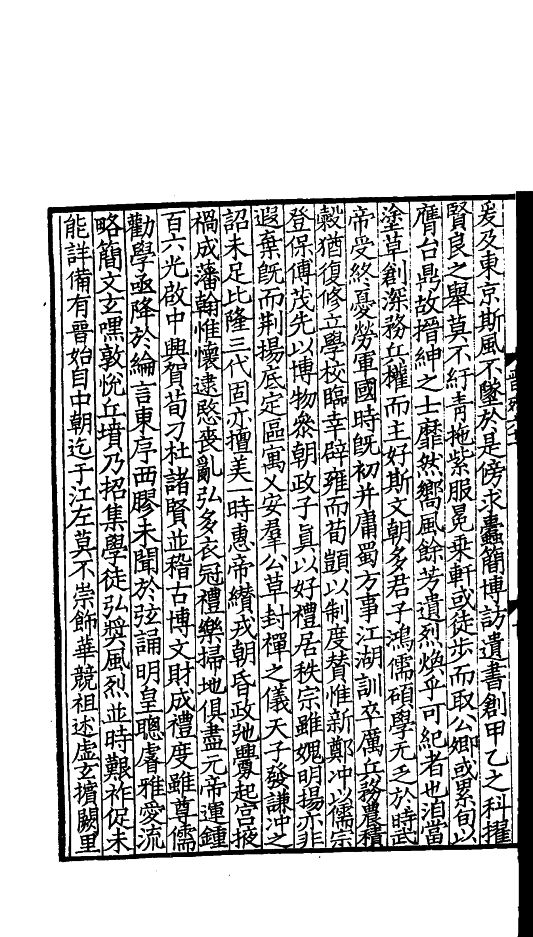 爰及東京斯風不墜於是傍求蠹簡博訪遺書創甲乙之科擢
賢良之舉莫不紆青拖紫服冕乘軒或徒步而取公卿或累旬以
膺台鼎故搢紳之士靡然嚮風餘芳遺烈煥乎可紀者也洎當
塗草創深務兵權而主好斯文朝多君子鴻儒碩學无乏於時武
帝受終憂勞軍國時旣初并庸蜀方事江湖訓卒厲兵務農積
穀猶復修立學校臨幸辟雍而荀顗以制度贊惟新鄭沖以儒宗
登保傅茂先以博物參朝政子真以好禮居秩宗雖媿明揚亦非
遐棄旣而荆揚底定區寓乂安羣公草封禪之儀天子發謙沖之
詔未足比隆三代固亦擅美一時惠帝纘戎朝昏政弛釁起宮掖
禍成藩翰惟懷逮愍喪亂弘多衣冠禮樂掃地俱盡元帝運鍾
百六光啟中興賀荀刁杜諸賢並稽古博文財成禮度雖尊儒
勸學亟降於綸言東序西膠未聞於弦誦明皇聰睿雅愛流
略簡文玄嘿敦悅丘墳乃招集學徒弘奬風烈並時艱祚促未
能詳備有晉始自中朝迄于江左莫不崇飾華競祖述虛玄擯闕里